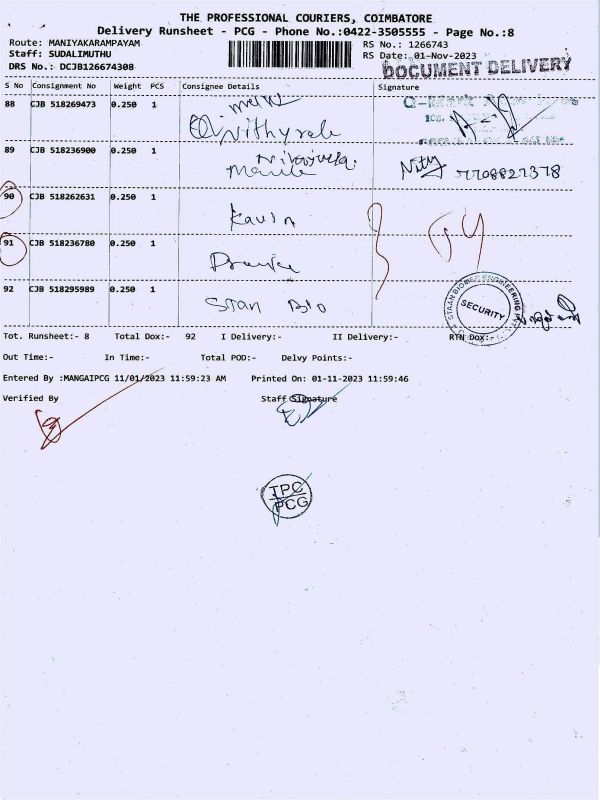 THE PROFESSIONAL COURIERS, COIMBATORE
Delivery Runsheet - PCG - Phone No.:0422-3505555 - Page No.:8
Route: MANIYAKARAMPAYAM
RS No.: 1266743
Staff: SUDALIMUTHU
RS Date: 01-Nov-2023
DRS No.: DCJB126674308
DOCUMENT DELIVERY
S No Consignment No Weight PCS Consignee Details Signature
88 CJB 518269473 0.250 1
89 CJB 518236900 0.250 1
Nity 7708827378
90 CJB 518262631 0.250 1 Kavin
91 CJB 518236780 0.250 1
92 CJB 518295989 0.250 1 Stan Bio
STAAN BIOMED ENGINEERING
SECURITY
Tot. Runsheet:- 8 Total Dox:- 92 I Delivery:- II Delivery:- RTN Dox:-
Out Time:- In Time:- Total POD:- Delvy Points:-
Entered By :MANGAIPCG 11/01/2023 11:59:23 AM Printed On: 01-11-2023 11:59:46
Verified By Staff Signature
TPC
PCG